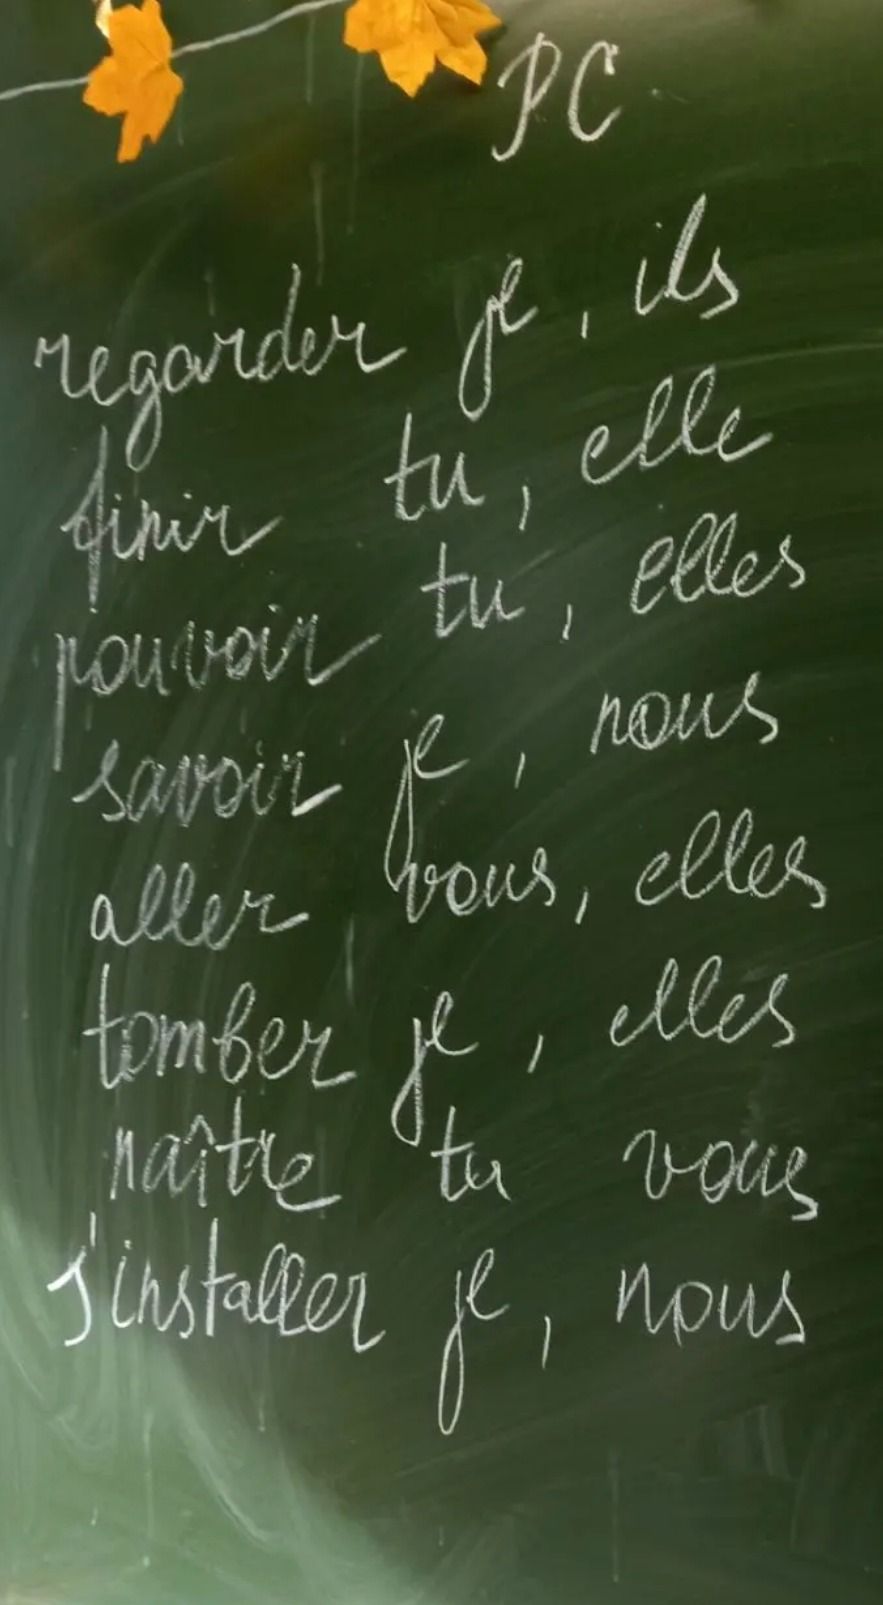 PC
regarder je, ils
finir tu, elle
pouvoir tu, elles
savoir je, nous
aller vous, elles
tomber je, elles
naître tu vous
s'installer je, nous